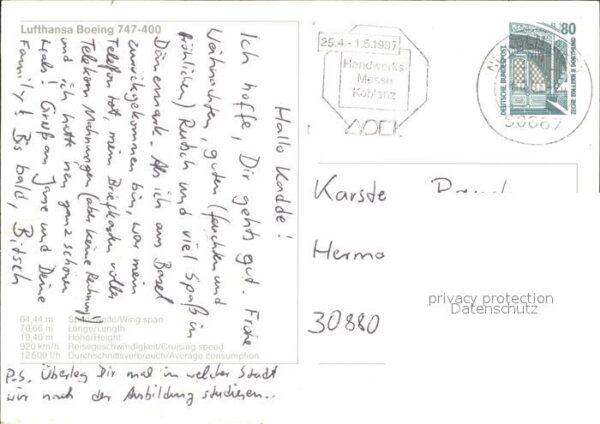 Lufthansa Boeing 747-400
Hallo Kadde!
Ich hoffe, Dir gehts gut. Frohe
Weihnachten, guten (feuchten und
fröhlichen) Rutsch und viel Spaß in
Dänemark. Als ich aus Basel
zurückgekommen bin, war mein
Telefon tot, mein Briefkasten voller
Telekom Mahnungen (aber keine Rechnung)
und ich hatte nen ganz schönen
Hals! Grüß an Jane und Deine
Family! Bis bald,
64,44 m Spannweite/Wing span
70,66 m Länge/Length
19,40 m Höhe/Height
920 km/h Reisegeschwindigkeit/Cruising speed
12 500 l/h Durchschnittsverbrauch/Average consumption
P.S. Überleg Dir mal in welcher Stadt
wir nach der Ausbildung studieren..
25.4. - 1.5.1997
Handwerks-
Messe
Koblenz
80
DEUTSCHE BUNDESPOST
30880
privacy protection
Datenschutz